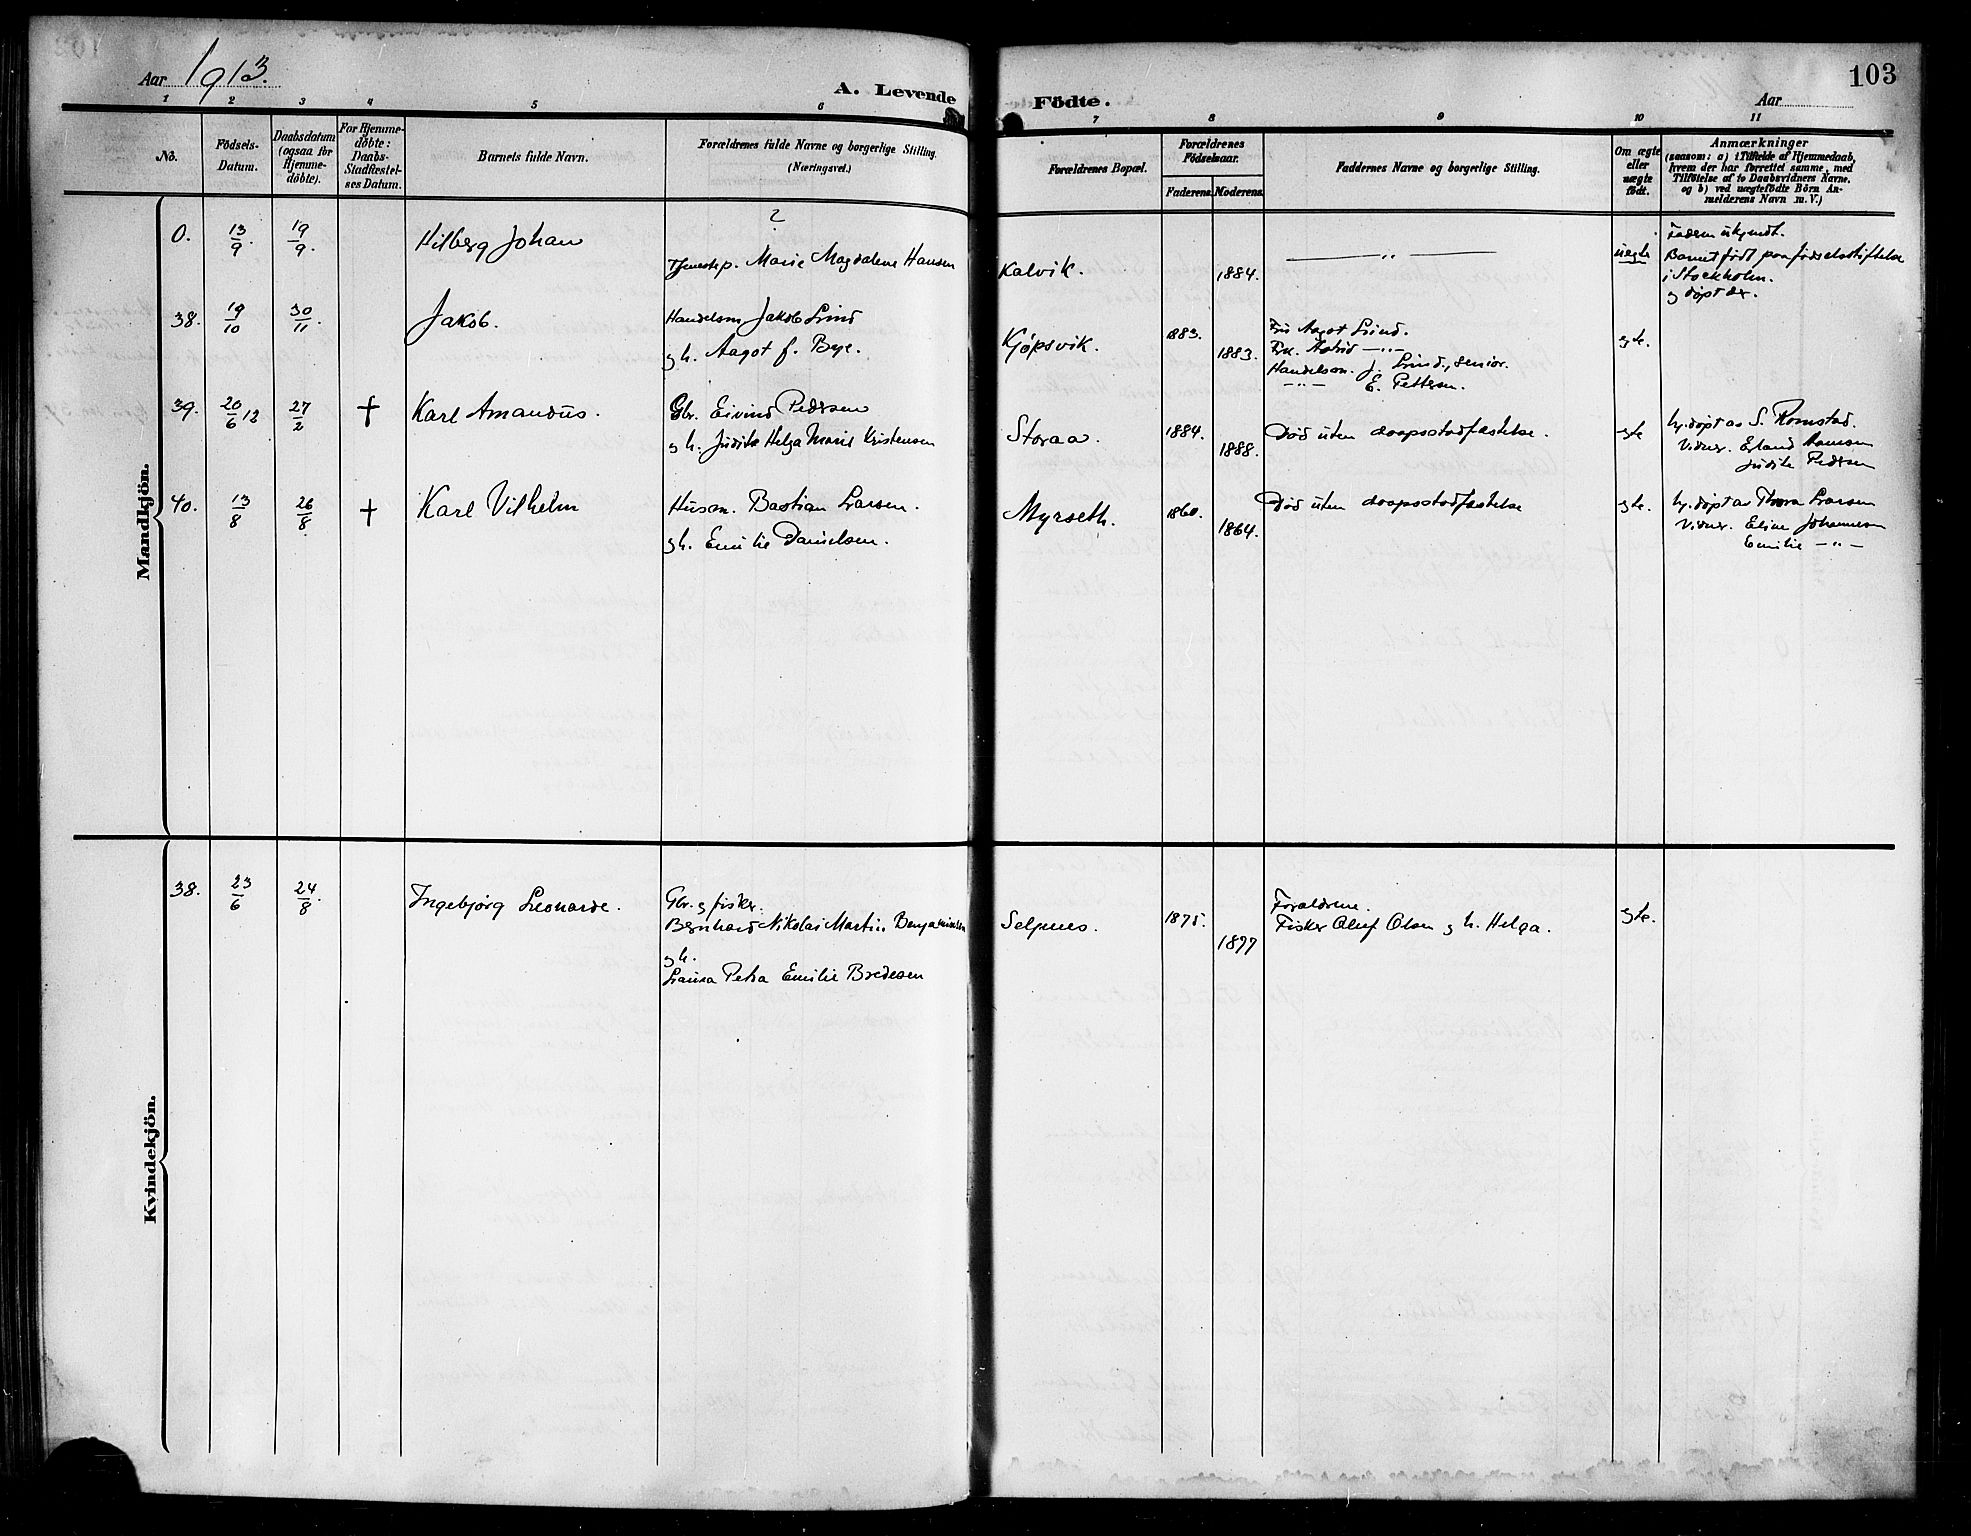 Aar 1913.
A. Levende
Födte.
Aar
103
1 2 3 4 5 6 7 8 9 10 11
No.
Födsels-
Datum.
Daabsdatum
(ogsaa for
Hjemme-
döbte).
For Hjemme-
döbte:
Daabs-
Stadfæstel-
ses Datum.
Barnets fulde Navn.
Forældrenes fulde Navne og borgerlige Stilling.
(Næringsvei.)
Forældrenes Bopæl.
Forældrenes
Födselsaar.
Faderens.
Moderens.
Faddernes Navne og borgerlige Stilling.
Om ægte
eller
uægte
födt.
Anmærkninger
(saasom: a) i Tilfælde af Hjemmedaab,
hvem der har forrettet samme, med
Tilföielse af to Daabsvidners Navne,
og b) ved uægtefödte Börn An-
melderens Navn m. V.)
Mandkjön.
0. 13/9. 19/9. Hilberg Johan
?
Tjenestep. Marie Magdalene Hansen
Kalvik.
1884.
— „ —
uegte
Faderen ukjendt.
Barnet født paa fødselsstiftelse
i Stockholm.
og døpt der.
38. 19/10 30/11. Jakob.
Handelsm. Jakob Lind
og h. Aagot f. Bye.
Kjøpsvik.
1883.
1883.
Fru Aagot Lind.
Frk. Astrid —„—
Handelsm. J. Lind, senior.
—„— E. Pettersen.
egte.
39. 20/6 12 27/2 † Karl Amandus.
Gbr. Eivind Pedersen
og h. Judith Helga Marie Kristensen
Storaa.
1884.
1888.
Død uten daapsstadfæstelse.
egte
hj. døpt av S. Romstad.
Vidner. Erland Hansen
Judith Pedersen
40. 13/8 26/8. † Karl Vilhelm
Husm. Bastian Larsen.
og h. Emilie Danielsen.
Myrseth.
1860.
1864.
Død uten daapsstadfæstelse
egte.
hj. døpt av Thora Larsen
Vidner. Eline Johannesen
Emilie —„—
Kvindekjön.
38. 23/6 24/8. Ingebjørg Leonarde.
Gbr. og fisker.
Bernhard Nikolai Martin Benjaminsen
og h.
Laura Petra Emilie Bredesen
Selpnes.
1875.
1877
Forældrene.
Fisker Oluf Olsen og h. Helga.
egte.